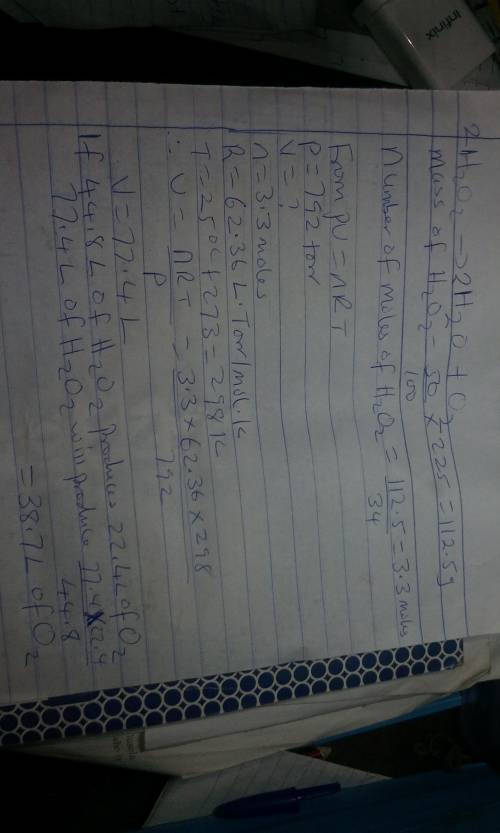 2H₂O₂ → 2H₂O + O₂
mass of H₂O₂ = 50/100 × 225 = 112.5g
Number of moles of H₂O₂ = 112.5/34 = 3.3 moles
From PV = nRT
P = 792 torr
V = ?
n = 3.3 moles
R = 62.36 L.Torr/mol.K
T = 25°C + 273 = 298K
∴ V = nRT/P = 3.3 × 62.36 × 298/792
V = 77.4 L
If 44.8L of H₂O₂ produces 22.4L of O₂
77.4L of H₂O₂ will produce 77.4 × 22.4/44.8
= 38.7L of O₂
Infinix